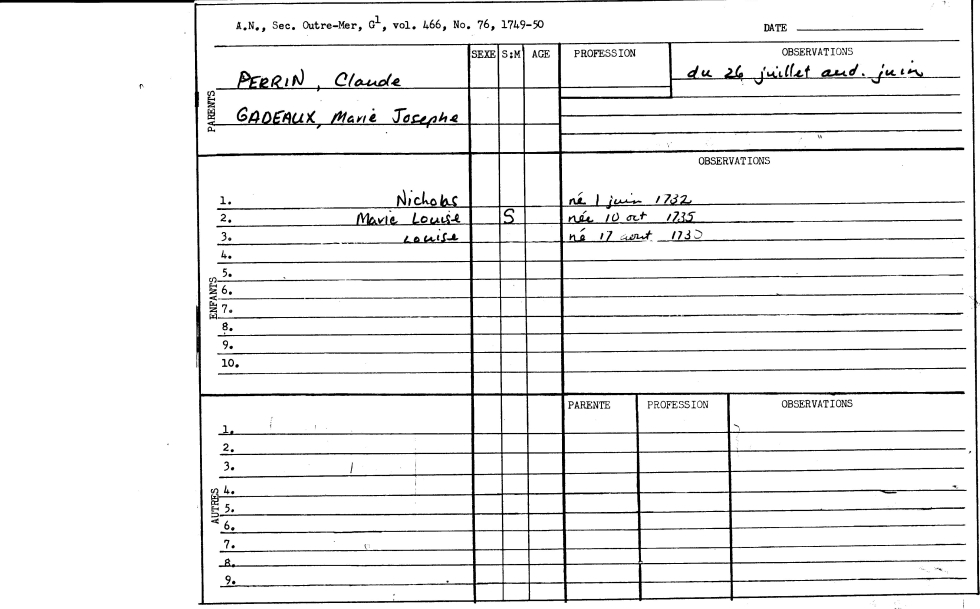 A.N., Sec. Outre-Mer, G1, vol. 466, No. 76, 1749-50 DATE
SEXE S:M AGE PROFESSION OBSERVATIONS
PARENTS
PERRIN, Claude du 26 juillet aud. juin
GADEAUX, Marie Josephe
OBSERVATIONS
ENFANTS
1. Nicholas né 1 juin 1732
2. Marie Louise S née 10 oct 1735
3. Louise né 17 aout
4.
5.
6.
7.
8.
9.
10.
PARENTE PROFESSION OBSERVATIONS
AUTRES
1.
2.
3.
4.
5.
6.
7.
8.
9.